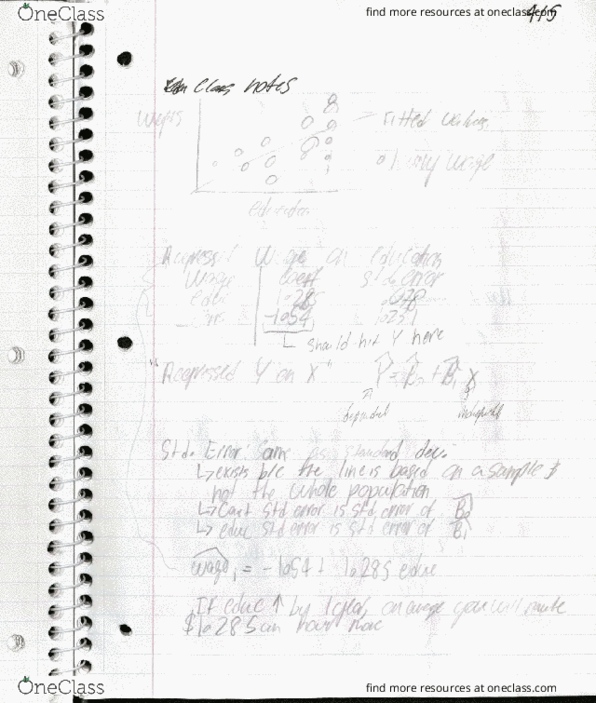 OneClass
find more resources at oneclass.com
4/5
Class notes
Wages
Fitted values
avg wage
education
Regress Wage on Education
Wage coef std. error
educ 1.285
cons -1.054
should hit Y here
"Regressed Y on X" Ŷ = B̂₀ + B̂₁ X
dependent independent
Std. Error: Same as standard dev.
↳ exists b/c the line is based on a sample &
not the whole population
↳ Const std error is std error of B̂₀
↳ educ std error is std error of B̂₁
wage₁ = -1.054 + 1.285 educ
If educ ↑ by 1 year, on average you will make
$1.285 an hour more
OneClass
find more resources at oneclass.com